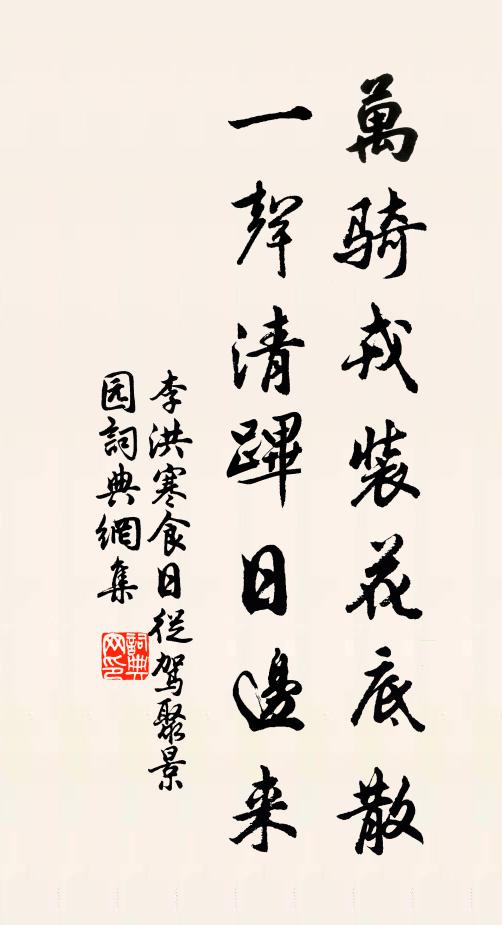 萬騎戎裝花底散
一聲清蹕日邊来
李洪寒食日從駕聚景
园詞典網集
詞典
网印